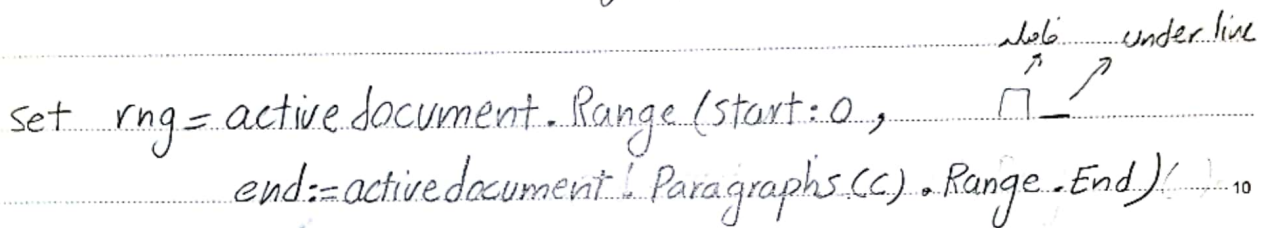 فاصله under line
set rng = active document . Range (start : 0 , _
end := activedocument . Paragraphs (C) . Range . End )
10